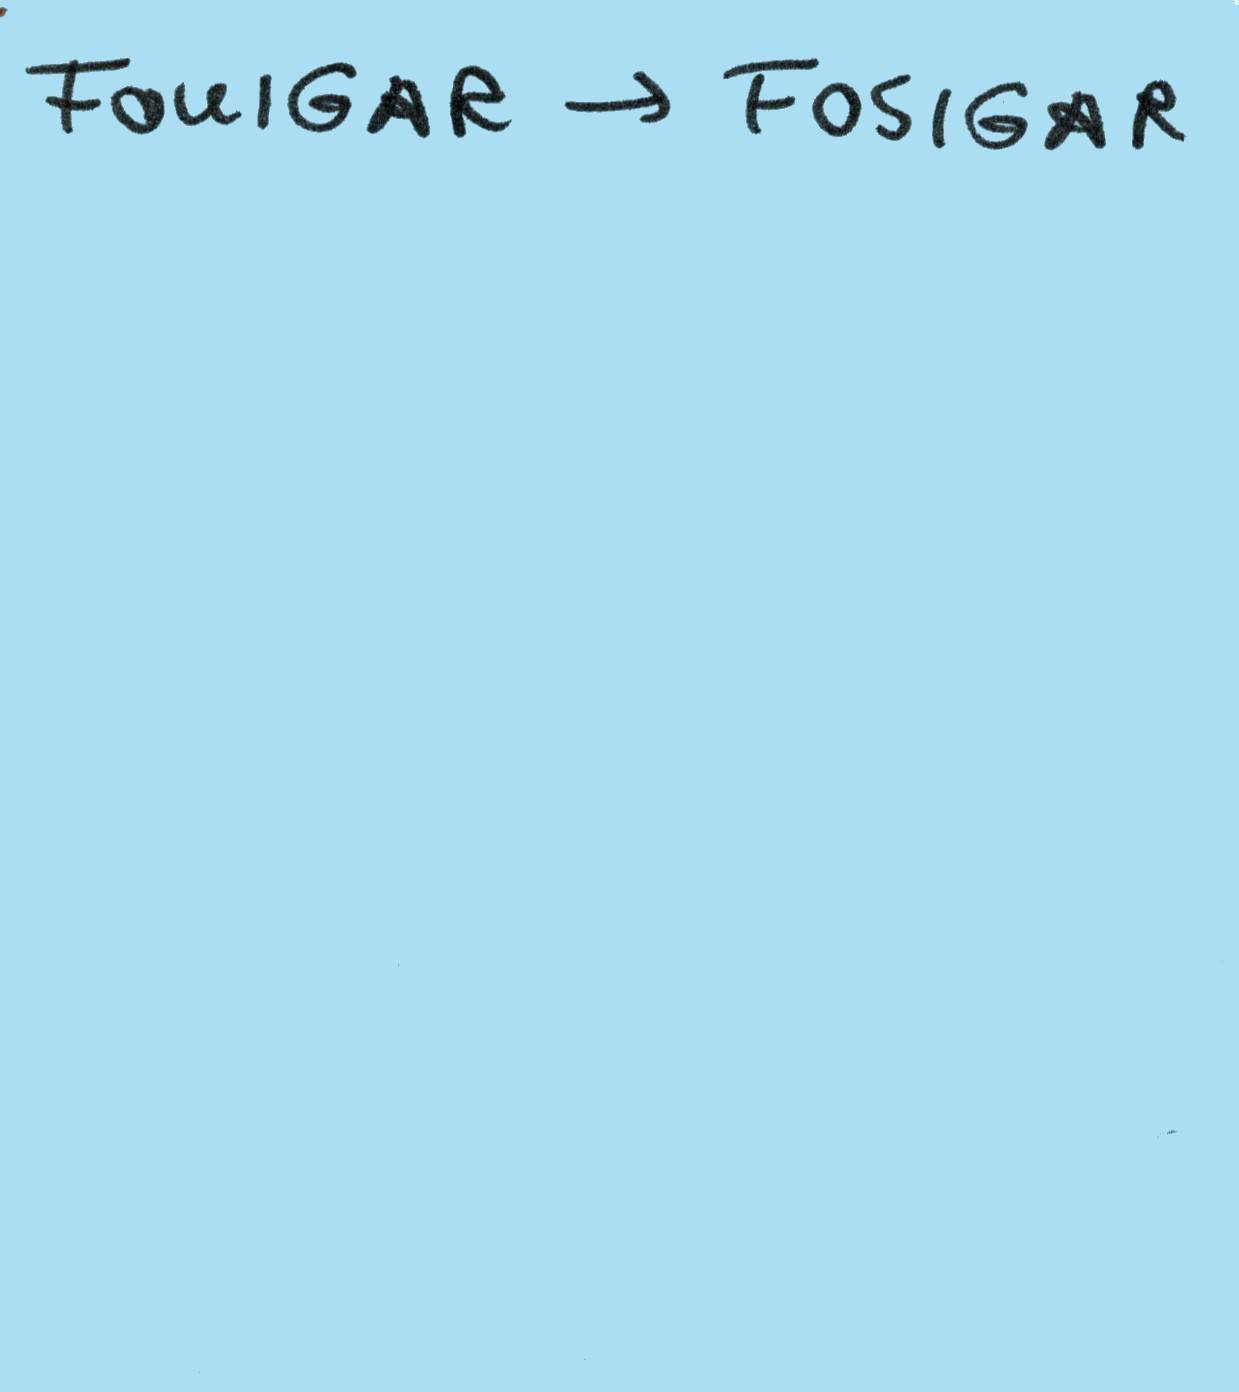 FOUIGAR → FOSIGAR